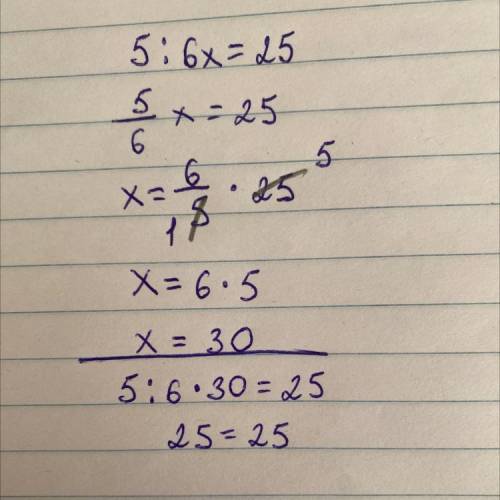 5:6x=25
5/6 x=25
x=6/5 1 · 25 5
x=6·5
x=30
5:6·30=25
25=25